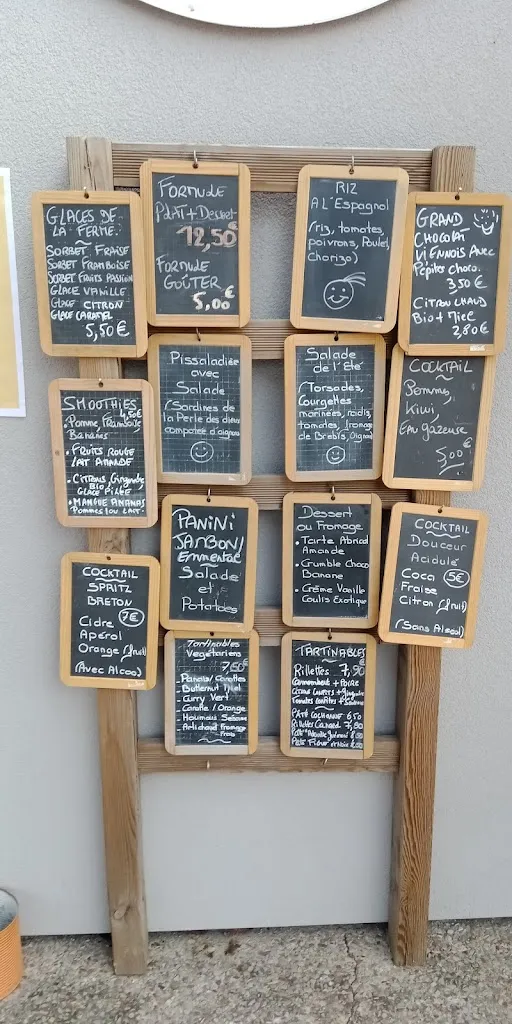 GLACES DE
LA FERME.
SORBET FRAISE
SORBET FRAMBOISE
SORBET FRUITS PASSION
GLACE VANILLE
GLACE CITRON
GLACE CARAMEL
5,50€
FORMULE
PLAT + DESSERT
12,50€
FORMULE
GOÛTER
5,00€
RIZ
A L'Espagnol
(riz, tomates,
poivrons, Poulet,
Chorizo)
GRAND
CHOCOLAT
VIENNOIS AVEC
Pépites choco.
3,50€
CITRON CHAUD
Bio + Miel
2,80€
SMOOTHIES
4,50€
• Pomme Framboise
Bananes
• FRUITS ROUGE
LAIT AMANDE
• Citrons Gingembre
Bio
GLACE PILÉE
• MANGUE ANANAS
Pommes ou Lait.
Pissaladière
avec
Salade
(Sardines de
la Perle des dieux
compotée d'oignons
Salade
de l'Eté
(Torsades,
Courgettes
marinées, radis,
tomates, fromage
de Brebis, Oignons
COCKTAIL
Pommes,
Kiwi,
Eau gazeuse
5,00€
COCKTAIL
SPRITZ
BRETON
7€
Cidre
Apérol
Orange (fruit)
(Avec Alcool)
PANINI
JAMBON/
Emmental
Salade
et
Potatoes
Dessert
ou Fromage
• Tarte Abricot
Amande
• Crumble Choco
Banane
• Crème Vanille
Coulis Exotique
COCKTAIL
Douceur
Acidulé
Coca 5€
Fraise
Citron (fruit)
(Sans Alcool)
Tartinables
Végétariens
7,50€
Panais/Carottes
Butternut Miel
Curry Vert
Carotte/Orange
Houmous Sésame
Artichaud Fromage
Frais
TARTINABLES
Rillettes 7,90€
Camembert + POIRE
Tomates confites +
PÂTÉ COCHONNET 6,50
Rillettes Canard 7,90